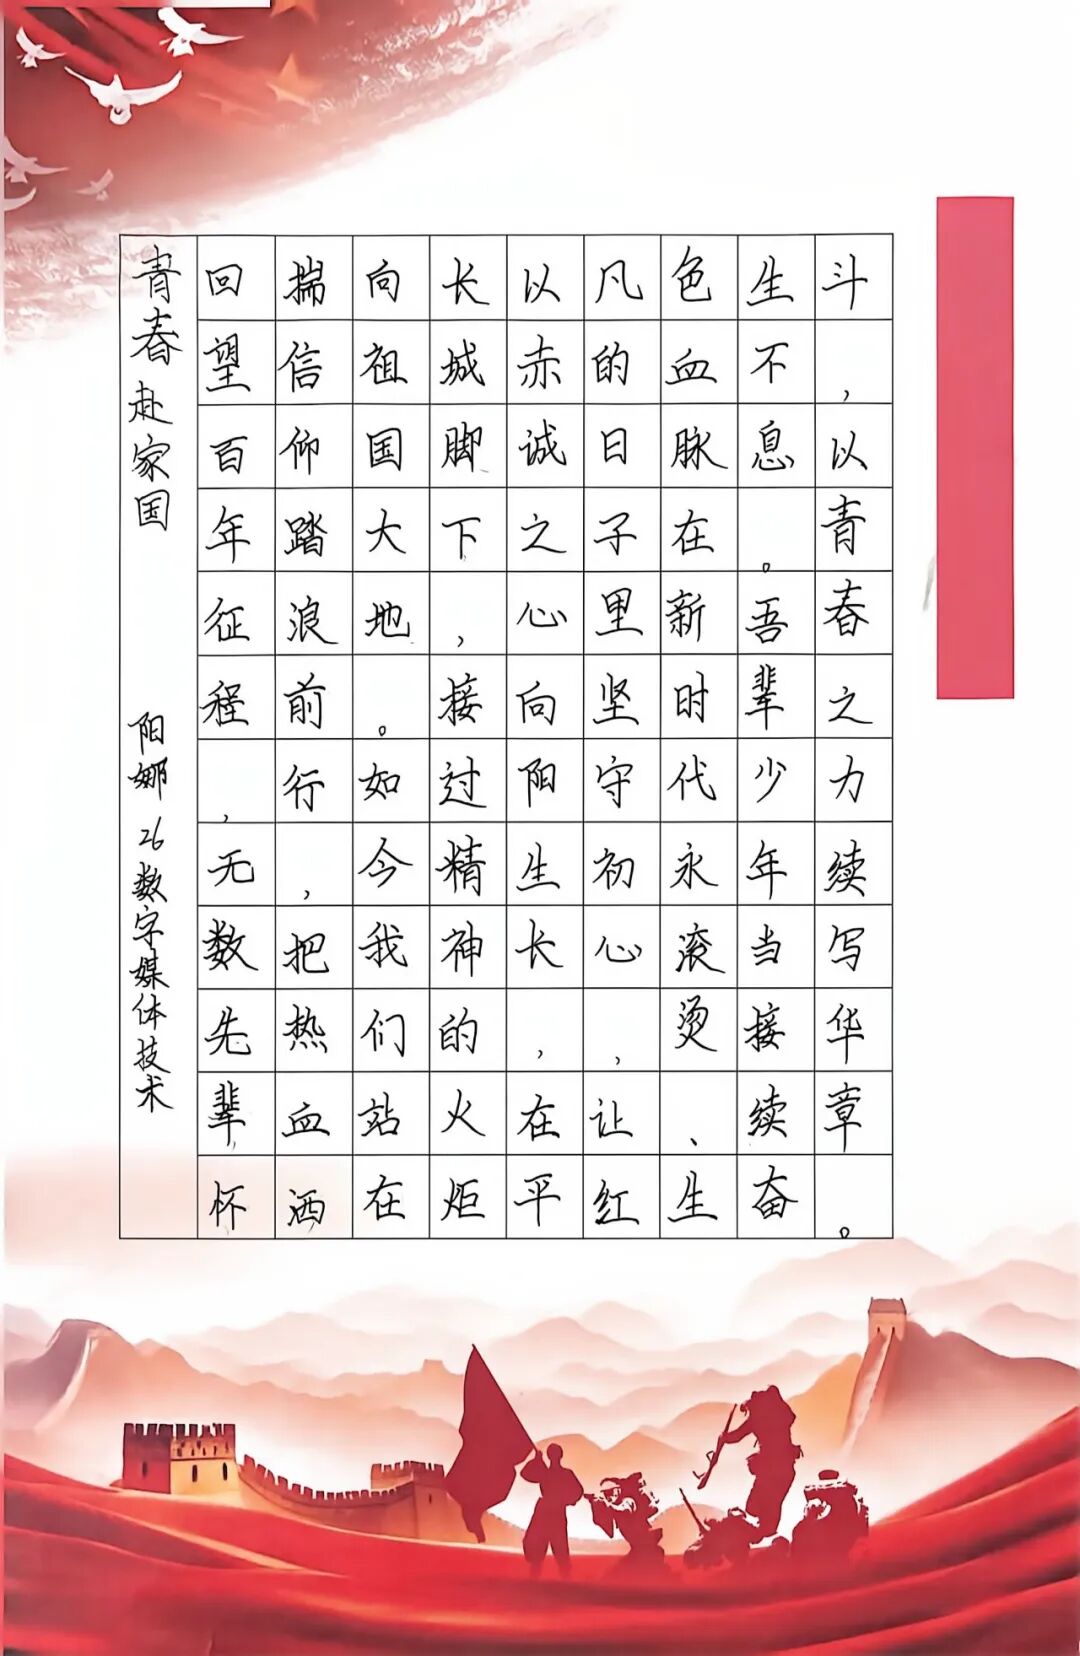 青春赴家国 阳娜 26数字媒体技术
回望百年征程，无数先辈怀
揣信仰踏浪前行，把热血洒
向祖国大地。如今我们站在
长城脚下，接过精神的火炬
以赤诚之心向阳生长，在平
凡的日子里坚守初心，让红
色血脉在新时代永滚烫、生
生不息。吾辈少年当接续奋
斗，以青春之力续写华章。